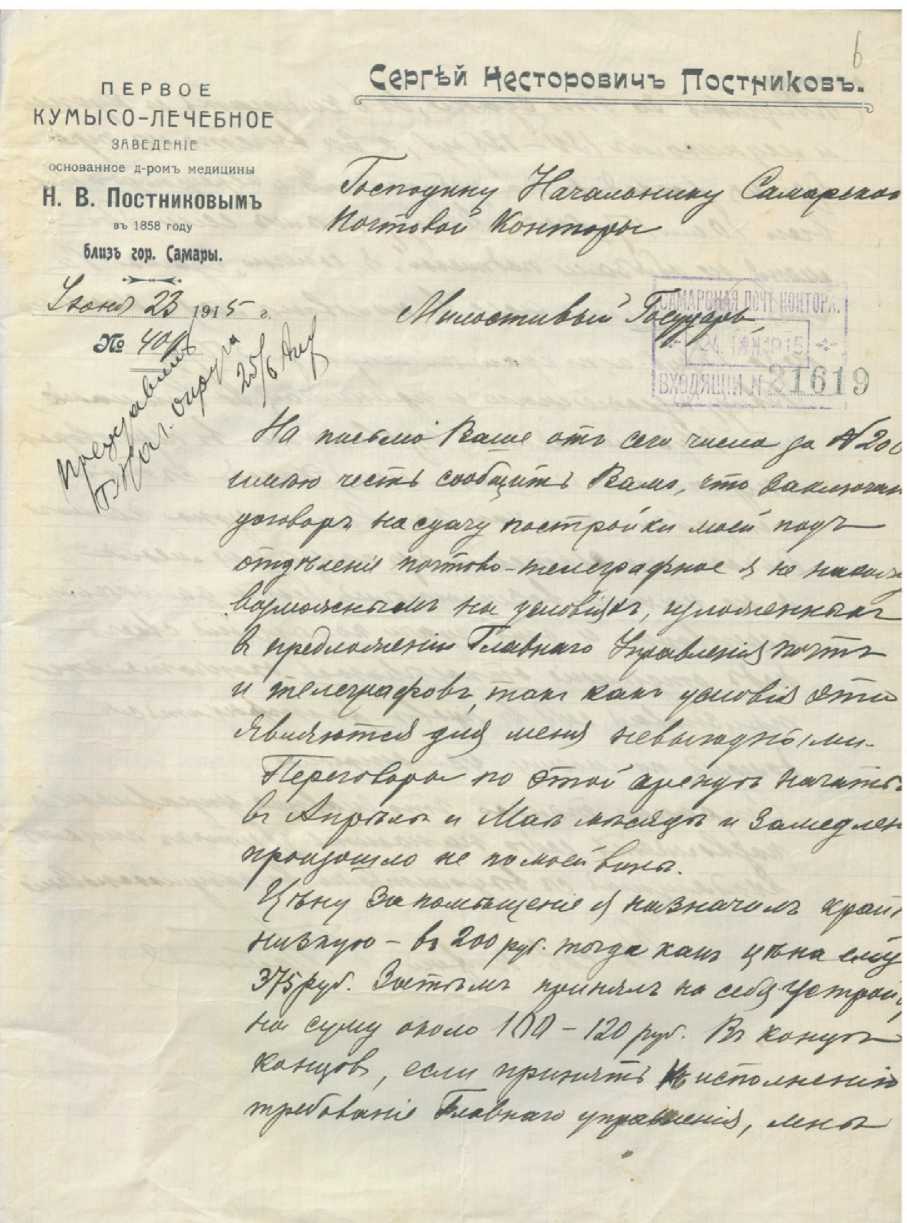 6
Сергѣй Несторовичъ Постниковъ.
ПЕРВОЕ
КУМЫСО-ЛЕЧЕБНОЕ
ЗАВЕДЕНІЕ
основанное д-ромъ медицины
Н. В. Постниковымъ
въ 1858 году
близъ гор. Самары.
Іюня 23 1915 г.
№ 409
25/6
Господину Начальнику Самарской
Почтовой Конторы
Милостивый Государь,
САМАРСКАЯ ПОЧТ. КОНТОРА.
24 ІЮН 1915
ВХОДЯЩІЙ N 21619
На письмо Ваше отъ сего числа за N 200
имѣю честь сообщить Вамъ, что заключить
договоръ на сдачу постройки моей подъ
отдѣленіе почтово-телеграфное я не нахожу
возможнымъ на условіяхъ, изложенныхъ
въ предложеніи Главнаго Управленія почтъ
и телеграфовъ, такъ какъ условія эти
являются для меня невыгодными.
Переговоры по этой арендѣ начаты
въ Апрѣлѣ и Маѣ мѣсяцѣ и замедлен
произошло не по моей винѣ.
Цѣну за помѣщеніе я назначилъ край
низкую – въ 200 руб. тогда какъ цѣна ему
375 руб. Затѣмъ принялъ на себя устрой
на сумму около 100 – 120 руб. Въ концѣ
концовъ, если принять къ исполненію
требованіе Главнаго управленія, мнѣ